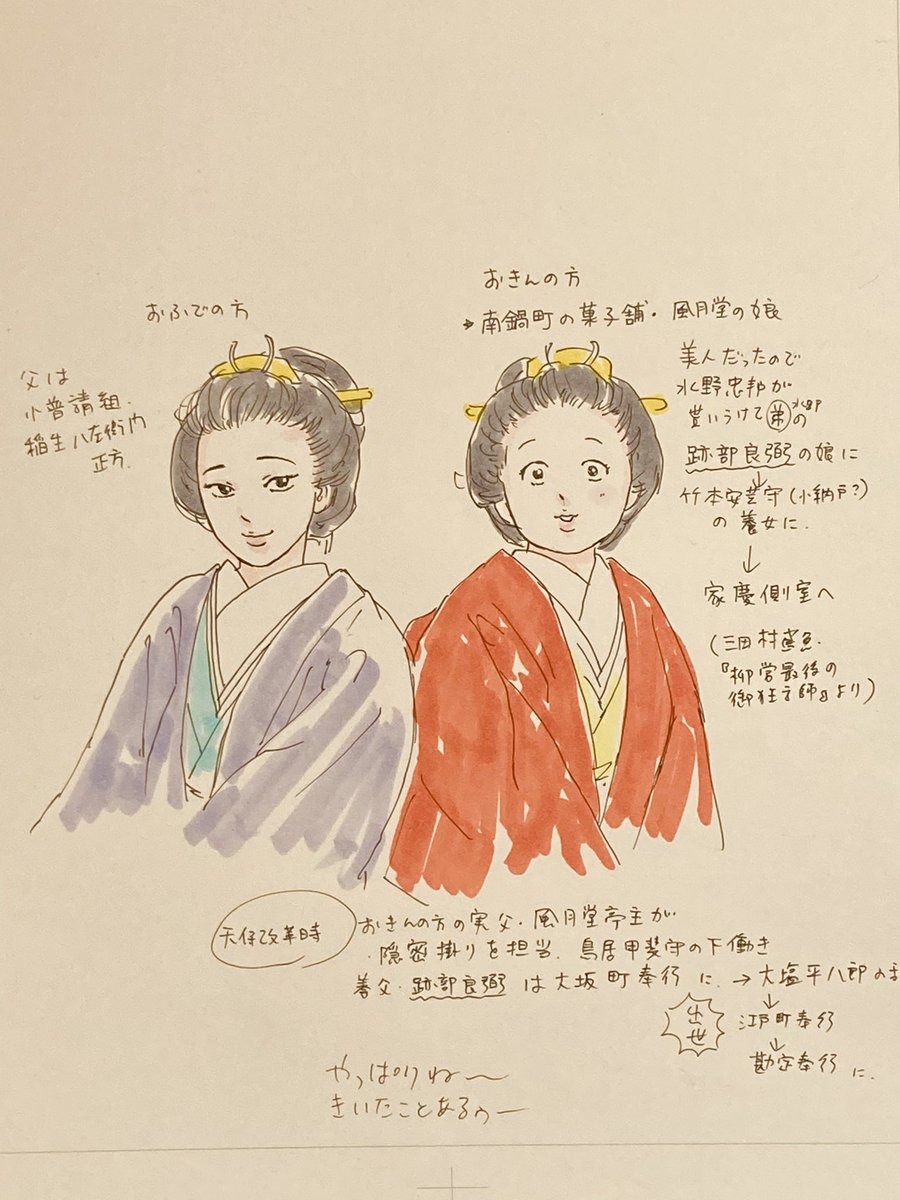 おふでの方
父は
小普請組.
稲生八左衛門
正方.
おきんの方
→南鍋町の菓子舗・風月堂の娘
美人だったので
水野忠邦が
貰いうけて弟水野の
跡部良弼の娘に
↓
竹本安芸守(小納戸?)
の養女に.
↓
家慶側室へ
(三田村鳶魚.
『柳営最後の
御狂言師』より)
天保改革時
おきんの方の実父・風月堂亭主が
・隠密掛りを担当. 鳥居甲斐守の下働き
養父・跡部良弼は大坂町奉行に. →大塩平八郎の
↓
出世
江戸町奉行
↓
勘定奉行に.
やっぱりね〜
きいたことあるゥー